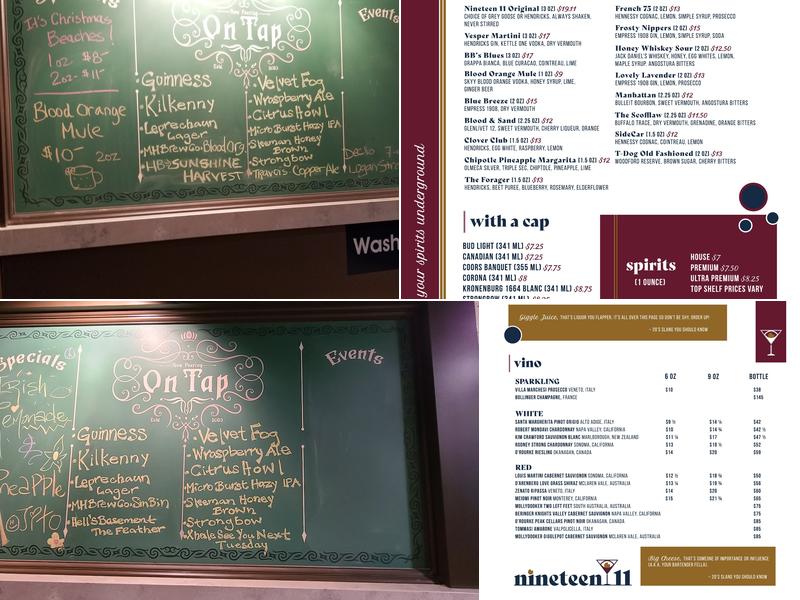 It's Christmas
Beaches!
1oz $8-
2oz-$11-
Blood Orange
Mule
$10- 2oz
Now Pouring
On Tap
Events
Guinness
Kilkenny
Leprechaun
Lager
SUNSHINE
HARVEST
Velvet Fog
Wraspberry Ale
Citrus Howl
Micro Burst Hazy IPA
Sleeman Honey
Brown
Strongbow
Wash
your spirits underground
Nineteen 11 Original (3 OZ) $19.11
CHOICE OF GREY GOOSE OR HENDRICKS, ALWAYS SHAKEN,
NEVER STIRRED
Vesper Martini (3 OZ) $17
HENDRICKS GIN, KETTLE ONE VODKA, DRY VERMOUTH
BB's Blues (3 OZ) $17
GRAPPA BIANCA, BLUE CURACAO, COINTREAU, LIME
Blood Orange Mule (1 OZ) $9
SKYY BLOOD ORANGE VODKA, HONEY SYRUP, LIME,
GINGER BEER
Blue Breeze (2 OZ) $15
EMPRESS 1908, DRY VERMOUTH
Blood & Sand (2.25 OZ) $12
GLENLIVET 12, SWEET VERMOUTH, CHERRY LIQUEUR, ORANGE
Clover Club (1.5 OZ) $13
HENDRICKS, EGG WHITE, RASPBERRY, LEMON
Chipotle Pineapple Margarita (1.5 OZ) $12
OLMECA SILVER, TRIPLE SEC, CHIPTOLE, PINEAPPLE, LIME
The Forager (1.5 OZ) $13
HENDRICKS, BEET PUREE, BLUEBERRY, ROSEMARY, ELDERFLOWER
French 75 (2 OZ) $13
HENNESSY COGNAC, LEMON, SIMPLE SYRUP, PROSECCO
Frosty Nippers (2 OZ) $15
EMPRESS 1908 GIN, LEMON, SIMPLE SYRUP, SODA
Honey Whiskey Sour (2 OZ) $12.50
JACK DANIEL'S WHISKEY, HONEY, EGG WHITES, LEMON,
MAPLE SYRUP, ANGOSTURA BITTERS
Lovely Lavender (2 OZ) $13
EMPRESS 1908 GIN, LEMON, PROSECCO
Manhattan (2.25 OZ) $12
BULLEIT BOURBON, SWEET VERMOUTH, ANGOSTURA BITTERS
The Scofflaw (2 OZ) $11.50
BUFFALO TRACE, DRY VERMOUTH, GRENADINE, ORANGE BITTERS
SideCar (1.5 OZ) $12
HENNESSY COGNAC, COINTREAU, LEMON
T-Dog Old Fashioned (2 OZ) $13
WOODFORD RESERVE, BROWN SUGAR, CHERRY BITTERS
with a cap
BUD LIGHT (341 ML) $7.25
CANADIAN (341 ML) $7.25
COORS BANQUET (355 ML) $7.75
CORONA (341 ML) $8
KRONENBURG 1664 BLANC (341 ML) $8.75
STRONGBOW (341 ML) $8.25
spirits
(1 OUNCE)
HOUSE $7
PREMIUM $7.50
ULTRA PREMIUM $8.25
TOP SHELF PRICES VARY
Specials
Now Pouring
On Tap
Events
Guinness
Kilkenny
Leprechaun
Lager
Hell's Basement
The Feather
Velvet Fog
Wraspberry Ale
Citrus Howl
Micro Burst Hazy IPA
Sleeman Honey
Brown
Strongbow
Whale See You Next
Tuesday
Giggle Juice, THAT'S LIQUOR YOU FLAPPER. IT'S ALL OVER THIS PAGE SO DON'T BE SHY, ORDER UP!
~ 20'S SLANG YOU SHOULD KNOW
vino
6 OZ 9 OZ BOTTLE
SPARKLING
VILLA MARCHESI PROSECCO VENETO, ITALY $10 $38
BOLLINGER CHAMPAGNE, FRANCE $145
WHITE
SANTA MARGHERITA PINOT GRIGIO ALTO ADIGE, ITALY $42
ROBERT MONDAVI CHARDONNAY NAPA VALLEY, CALIFORNIA $10
KIM CRAWFORD SAUVIGNON BLANC MARLBOROUGH, NEW ZEALAND $17
RODNEY STRONG CHARDONNAY SONOMA, CALIFORNIA $13 $52
O'ROURKE RIESLING OKANAGAN, CANADA $14 $20 $59
RED
LOUIS MARTINI CABERNET SAUVIGNON SONOMA, CALIFORNIA $50
D'ARENBERG LOVE GRASS SHIRAZ MCLAREN VALE, AUSTRALIA $56
ZENATO RIPASSA VENETO, ITALY $14 $20 $60
MEIOMI PINOT NOIR MONTEREY, CALIFORNIA $15 $65
MOLLYDOOKER TWO LEFT FEET SOUTH AUSTRALIA, AUSTRALIA $75
BERINGER KNIGHTS VALLEY CABERNET SAUVIGNON NAPA VALLEY, CALIFORNIA $75
O'ROURKE PEAK CELLARS PINOT NOIR OKANAGAN, CANADA $85
TOMMASI AMARONE VALPOLICELLA, ITALY $85
MOLLYDOOKER GIGGLEPOT CABERNET SAUVIGNON MCLAREN VALE, AUSTRALIA $85
nineteen 11
Big Cheese, THAT'S SOMEONE OF IMPORTANCE OR INFLUENCE
(A.K.A. YOUR BARTENDER FELLA).
~ 20'S SLANG YOU SHOULD KNOW